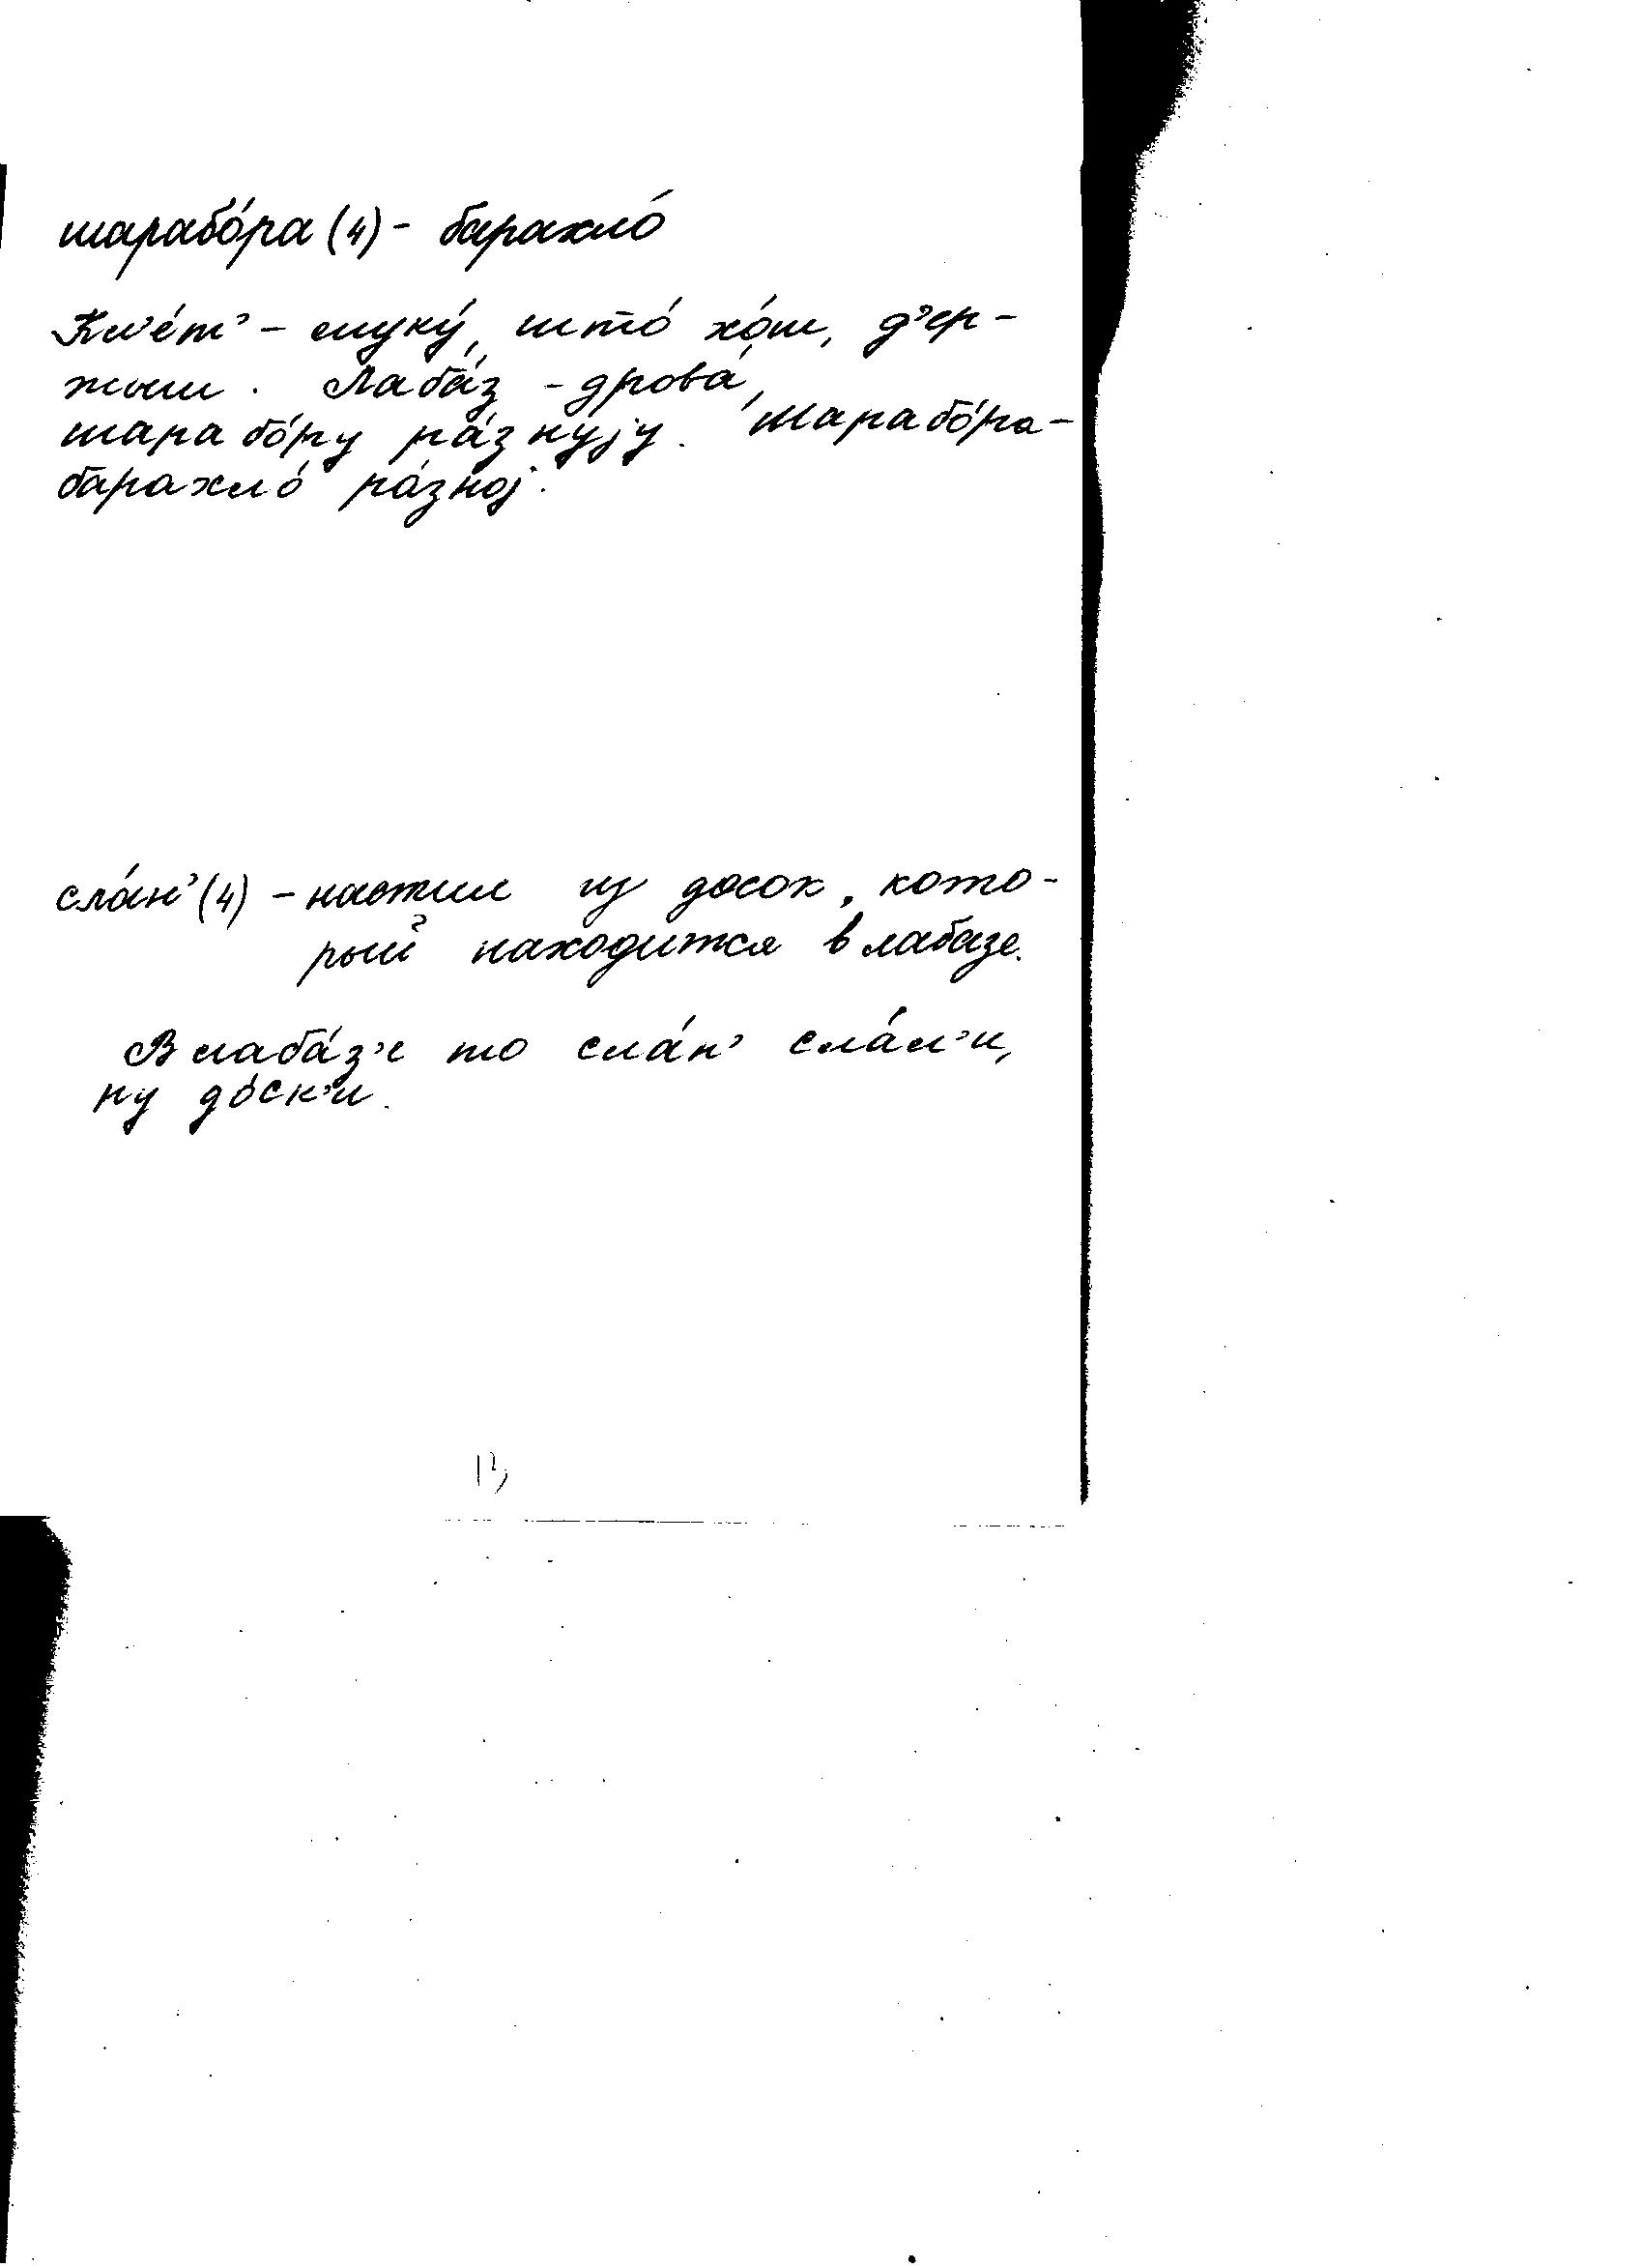 шарабо́ра (4) - барахло́
Кл'е́т' - муку́, што́ хо́ш, д'ер-
жым. Лаба́з - дрова́,
шарабо́ру ра́знуjу. Шарабо́ра-
барахло́ ра́зноj.
сла́н' (4) - настил из досок, кото-
рый находится в лабазе.
В лаба́з'е то сла́н' сла́л'и,
ну до́ск'и.